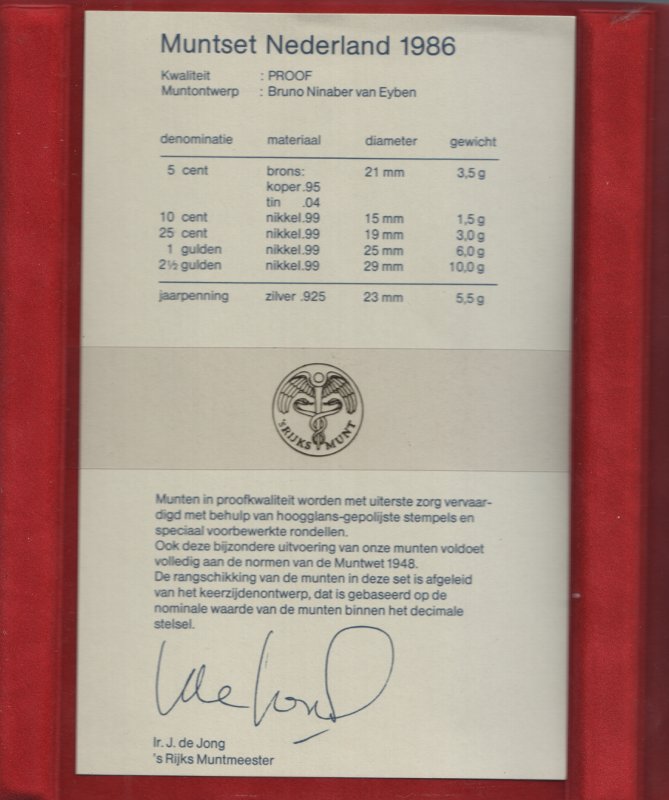 Muntset Nederland 1986
Kwaliteit : PROOF
Muntontwerp : Bruno Ninaber van Eyben
denominatie materiaal diameter gewicht
5 cent brons: 21 mm 3,5 g
koper .95
tin .04
10 cent nikkel .99 15 mm 1,5 g
25 cent nikkel .99 19 mm 3,0 g
1 gulden nikkel .99 25 mm 6,0 g
2½ gulden nikkel .99 29 mm 10,0 g
jaarpenning zilver .925 23 mm 5,5 g
'S RIJKS MUNT
Munten in proofkwaliteit worden met uiterste zorg vervaar-
digd met behulp van hoogglans-gepolijste stempels en
speciaal voorbewerkte rondellen.
Ook deze bijzondere uitvoering van onze munten voldoet
volledig aan de normen van de Muntwet 1948.
De rangschikking van de munten in deze set is afgeleid
van het keerzijdenontwerp, dat is gebaseerd op de
nominale waarde van de munten binnen het decimale
stelsel.
Ir. J. de Jong
's Rijks Muntmeester